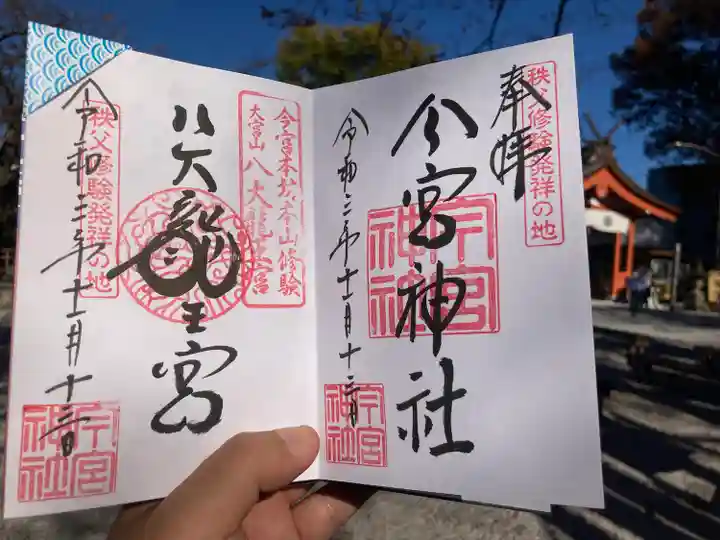 奉拝
秩父修験発祥の地
今宮神社
今宮神社
令和二年十一月十三日
今宮神社
今宮本坊本山修験
大宮山 八大龍王宮
八大龍王宮
秩父修験発祥の地
令和二年十一月十三日
今宮神社